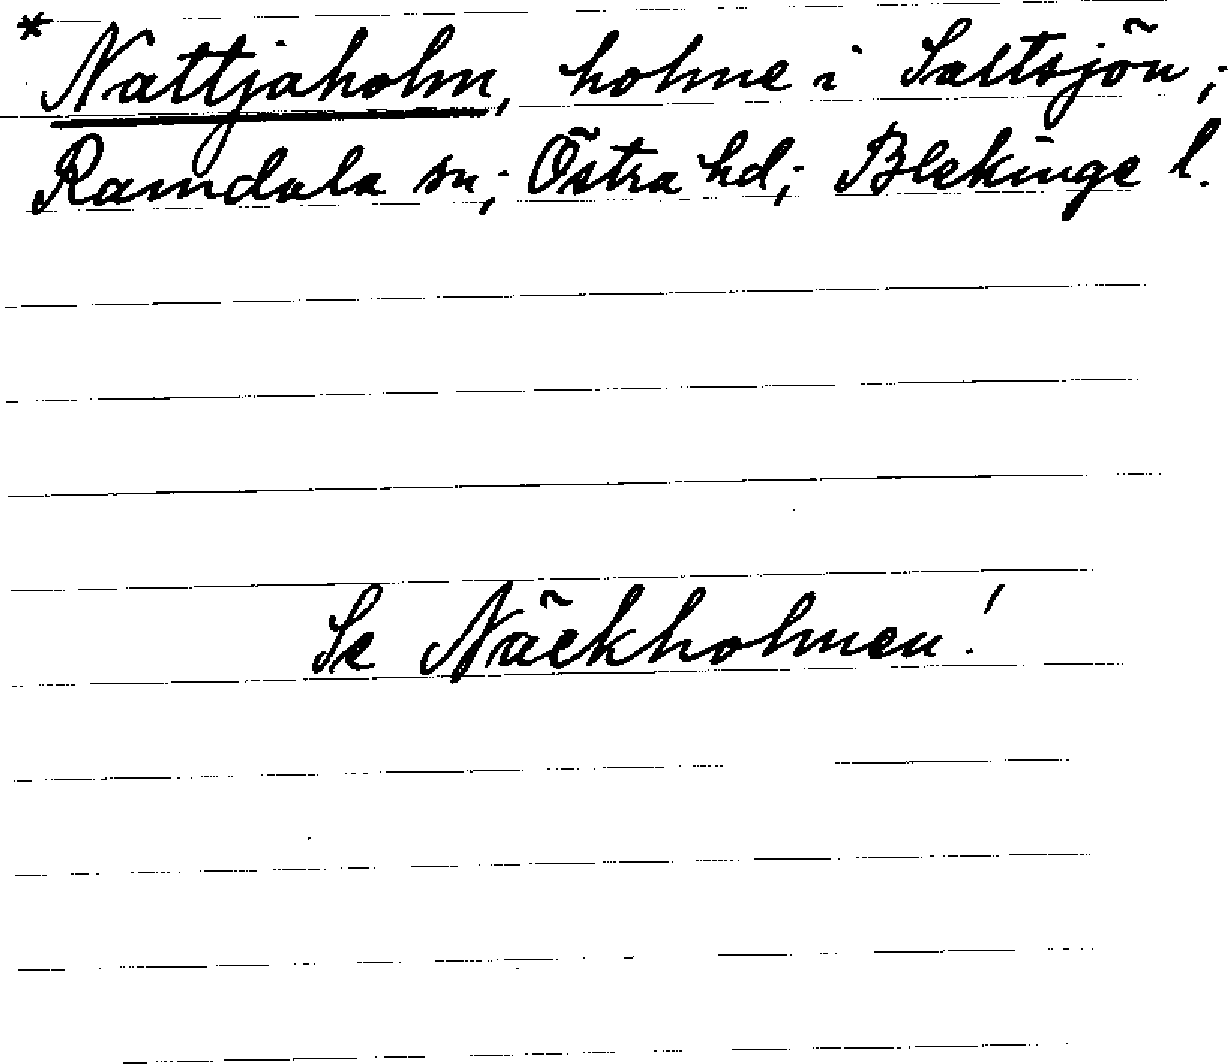 * Nattjaholm, holme i Saltsjön;
Ramdala sn; Östra hd; Blekinge l.
Se Näckholmen!